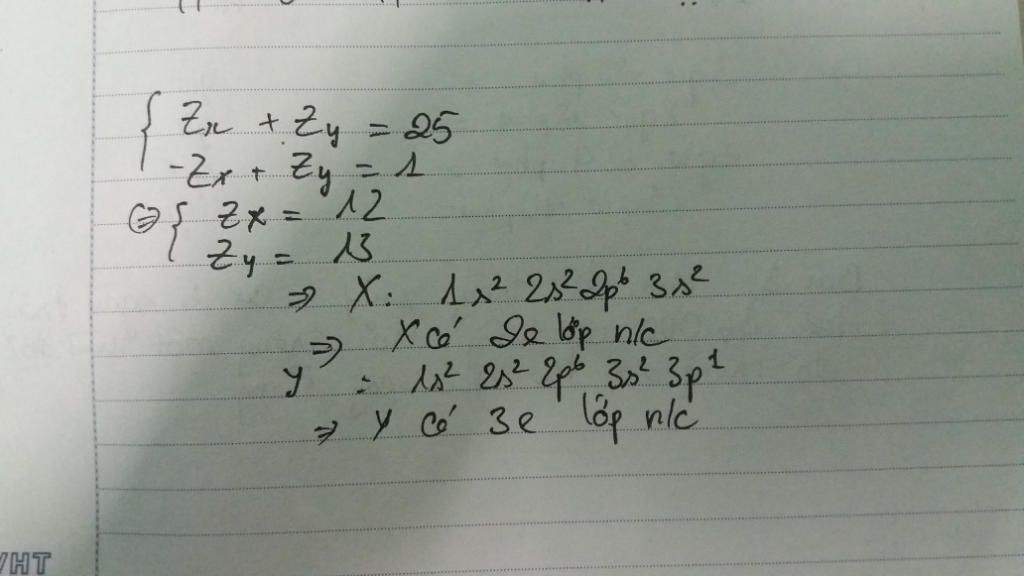 { Zx + Zy = 25
-Zx + Zy = 1
⇔ { Zx = 12
Zy = 13
⇒ X: 1s² 2s² 2p⁶ 3s²
⇒ X có 2e lớp n/c
Y : 1s² 2s² 2p⁶ 3s² 3p¹
⇒ Y có 3e lớp n/c